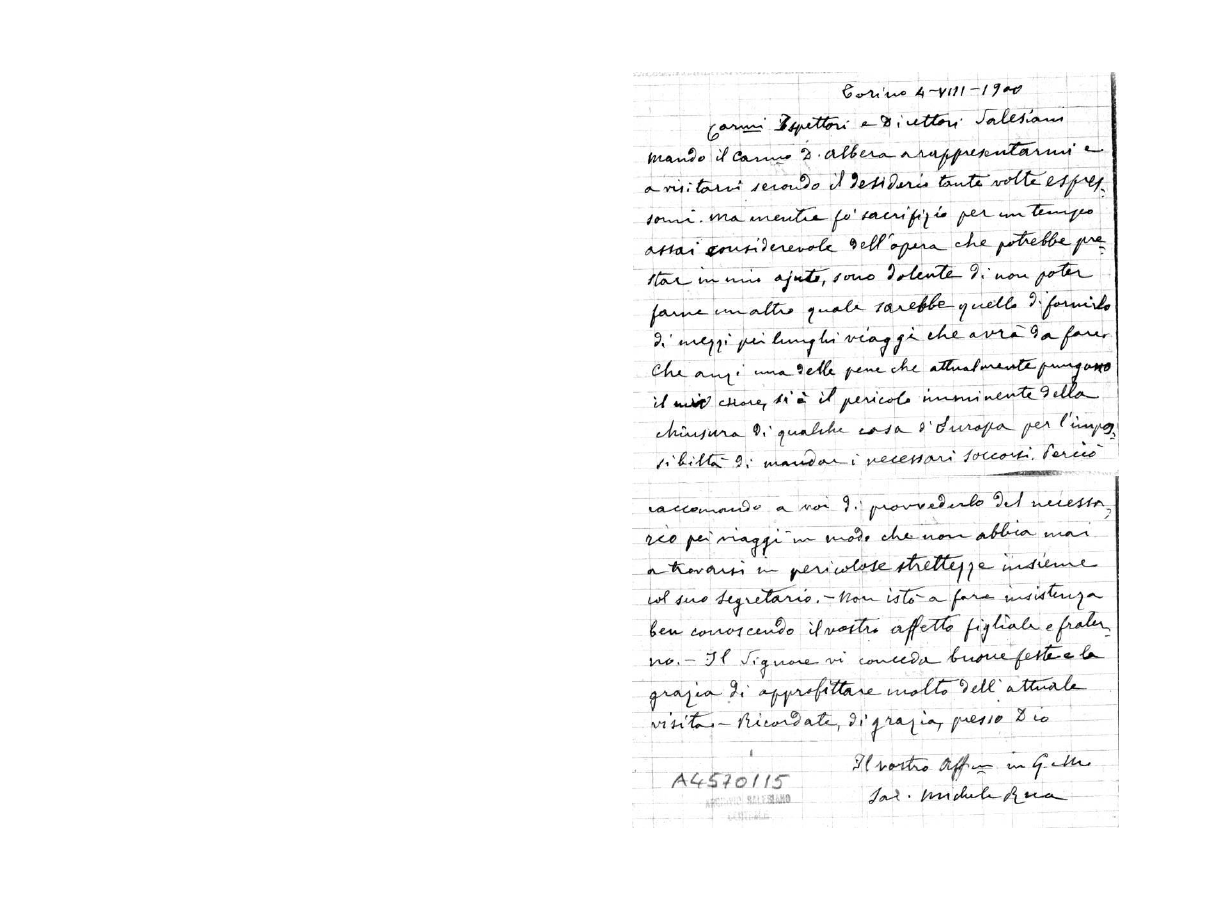 Torino 4-VIII-1900
Carmi Ispettori e Direttori Salesiani
Mando il Carmo D. Albera a rappresentarmi e
a visitarvi secondo il desiderio tante volte espres-
somi. Ma mentre fo sacrifizio per un tempo
assai considerevole dell'opera che potrebbe pre-
star in mio ajuto, sono dolente di non poter
farne un altro quale sarebbe quello di fornirlo
di mezzi pei lunghi viaggi che avrà da fare.
Che anzi una delle pene che attualmente pungono
il mio cuore, si è il pericolo imminente della
chiusura di qualche casa d'Europa per l'impos-
sibiltà di mandar i necessari soccorsi. Perciò
raccomando a voi di provvederlo del necessa-
rio pei viaggi in modo che non abbia mai
a trovarsi in pericolose strettezze insieme
col suo segretario. - Non istò a fare insistenza
ben conoscendo il vostro affetto figliale e frater-
no. - Il Signore vi conceda buone feste e la
grazia di approfittare molto dell'attuale
visita. - Ricordate, di grazia, presso Dio
Il vostro Affmo in G. e M.
Sac. Michele Rua
A4570115
ARCHIVIO SALESIANO
CENTRALE